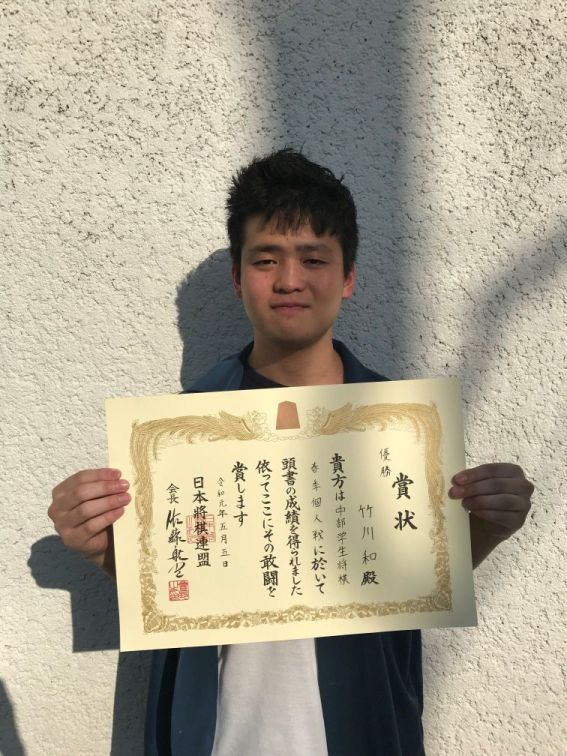 優勝
賞状
竹川和殿
貴方は中部学生将棋
春季個人戦に於いて
頭書の成績を得られました
依ってここにその敢闘を
賞します
令和元年五月五日
日本将棋連盟
会長 佐藤康光